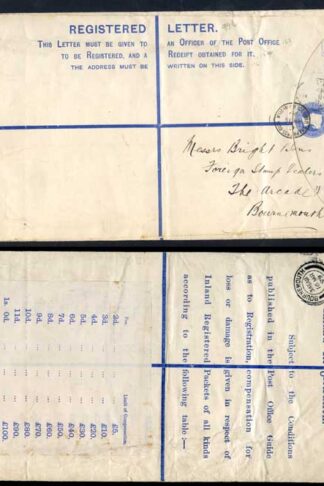 REGISTERED LETTER.
THIS LETTER MUST BE GIVEN TO AN OFFICER OF THE POST OFFICE
TO BE REGISTERED, AND A RECEIPT OBTAINED FOR IT.
THE ADDRESS MUST BE WRITTEN ON THIS SIDE.
Messrs Bright & Sons
Foreign Stamp Dealers
The Arcade
Bournemouth
Subject to the Conditions
published in the Post Office Guide
as to Registration, compensation for
loss or damage is given in respect of
Inland Registered Packets of all kinds
according to the following table:—
Fee. Limit of Compensation.
2d. £5.
3d. £10.
4d. £20.
5d. £30.
6d. £40.
7d. £50.
8d. £60.
9d. £70.
10d. £80.
11d. £90.
1s. 0d. £100.